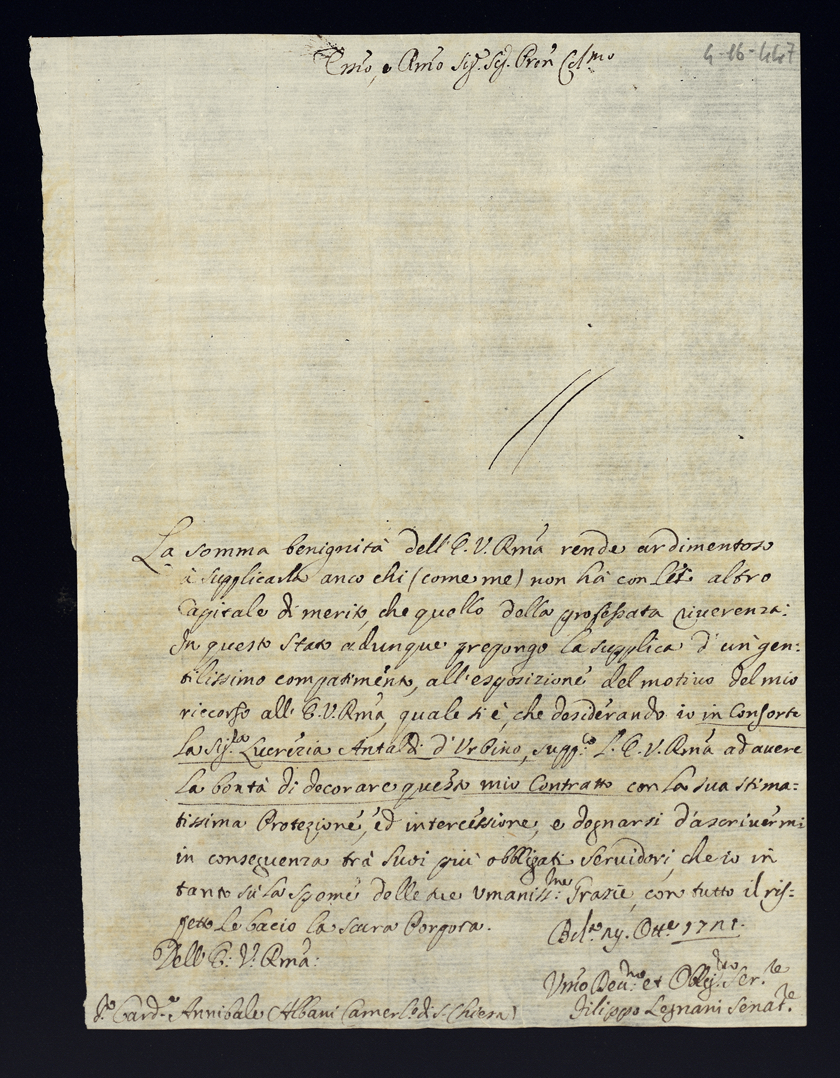 4-16-447
Emo, e Rmo Sig.r Sig. Pron Colmo
La somma benignità dell' E. V. Rma rende ardimentoso
à supplicarla anco chi (come me) non hà con Lei altro
Capitale di merito che quello della professata riuerenza:
In questo stato adunque propongo la supplica d' un gen:
tilissimo compatimento, all' esposizione del motiuo del mio
riccorso all' E. V. Rma, quale si è, che desiderando io in Consorte
la Sig.ra Lucrezia Antaldi d' Urbino, supp.co L' E. V. Rma ad auere
la bontà di decorare questo mio Contratto con la sua stima:
tissima Protezione, ed intercessione, e degnarsi d' ascriuermi
in conseguenza trà Suoi più obbligati Seruidori, che io in
tanto sù la speme delle sue Vmaniss:me Grazie, con tutto il ris:
petto Le bacio la Sacra Porpora.
Bol.a Ott.e 1721.
Dell' E: V: Rma:
Vmo Deu:mo et Obblig:mo Ser.re
Filippo Legnani Senat.re
Card.e Annibale Albani Camerl.o di S. Chiesa